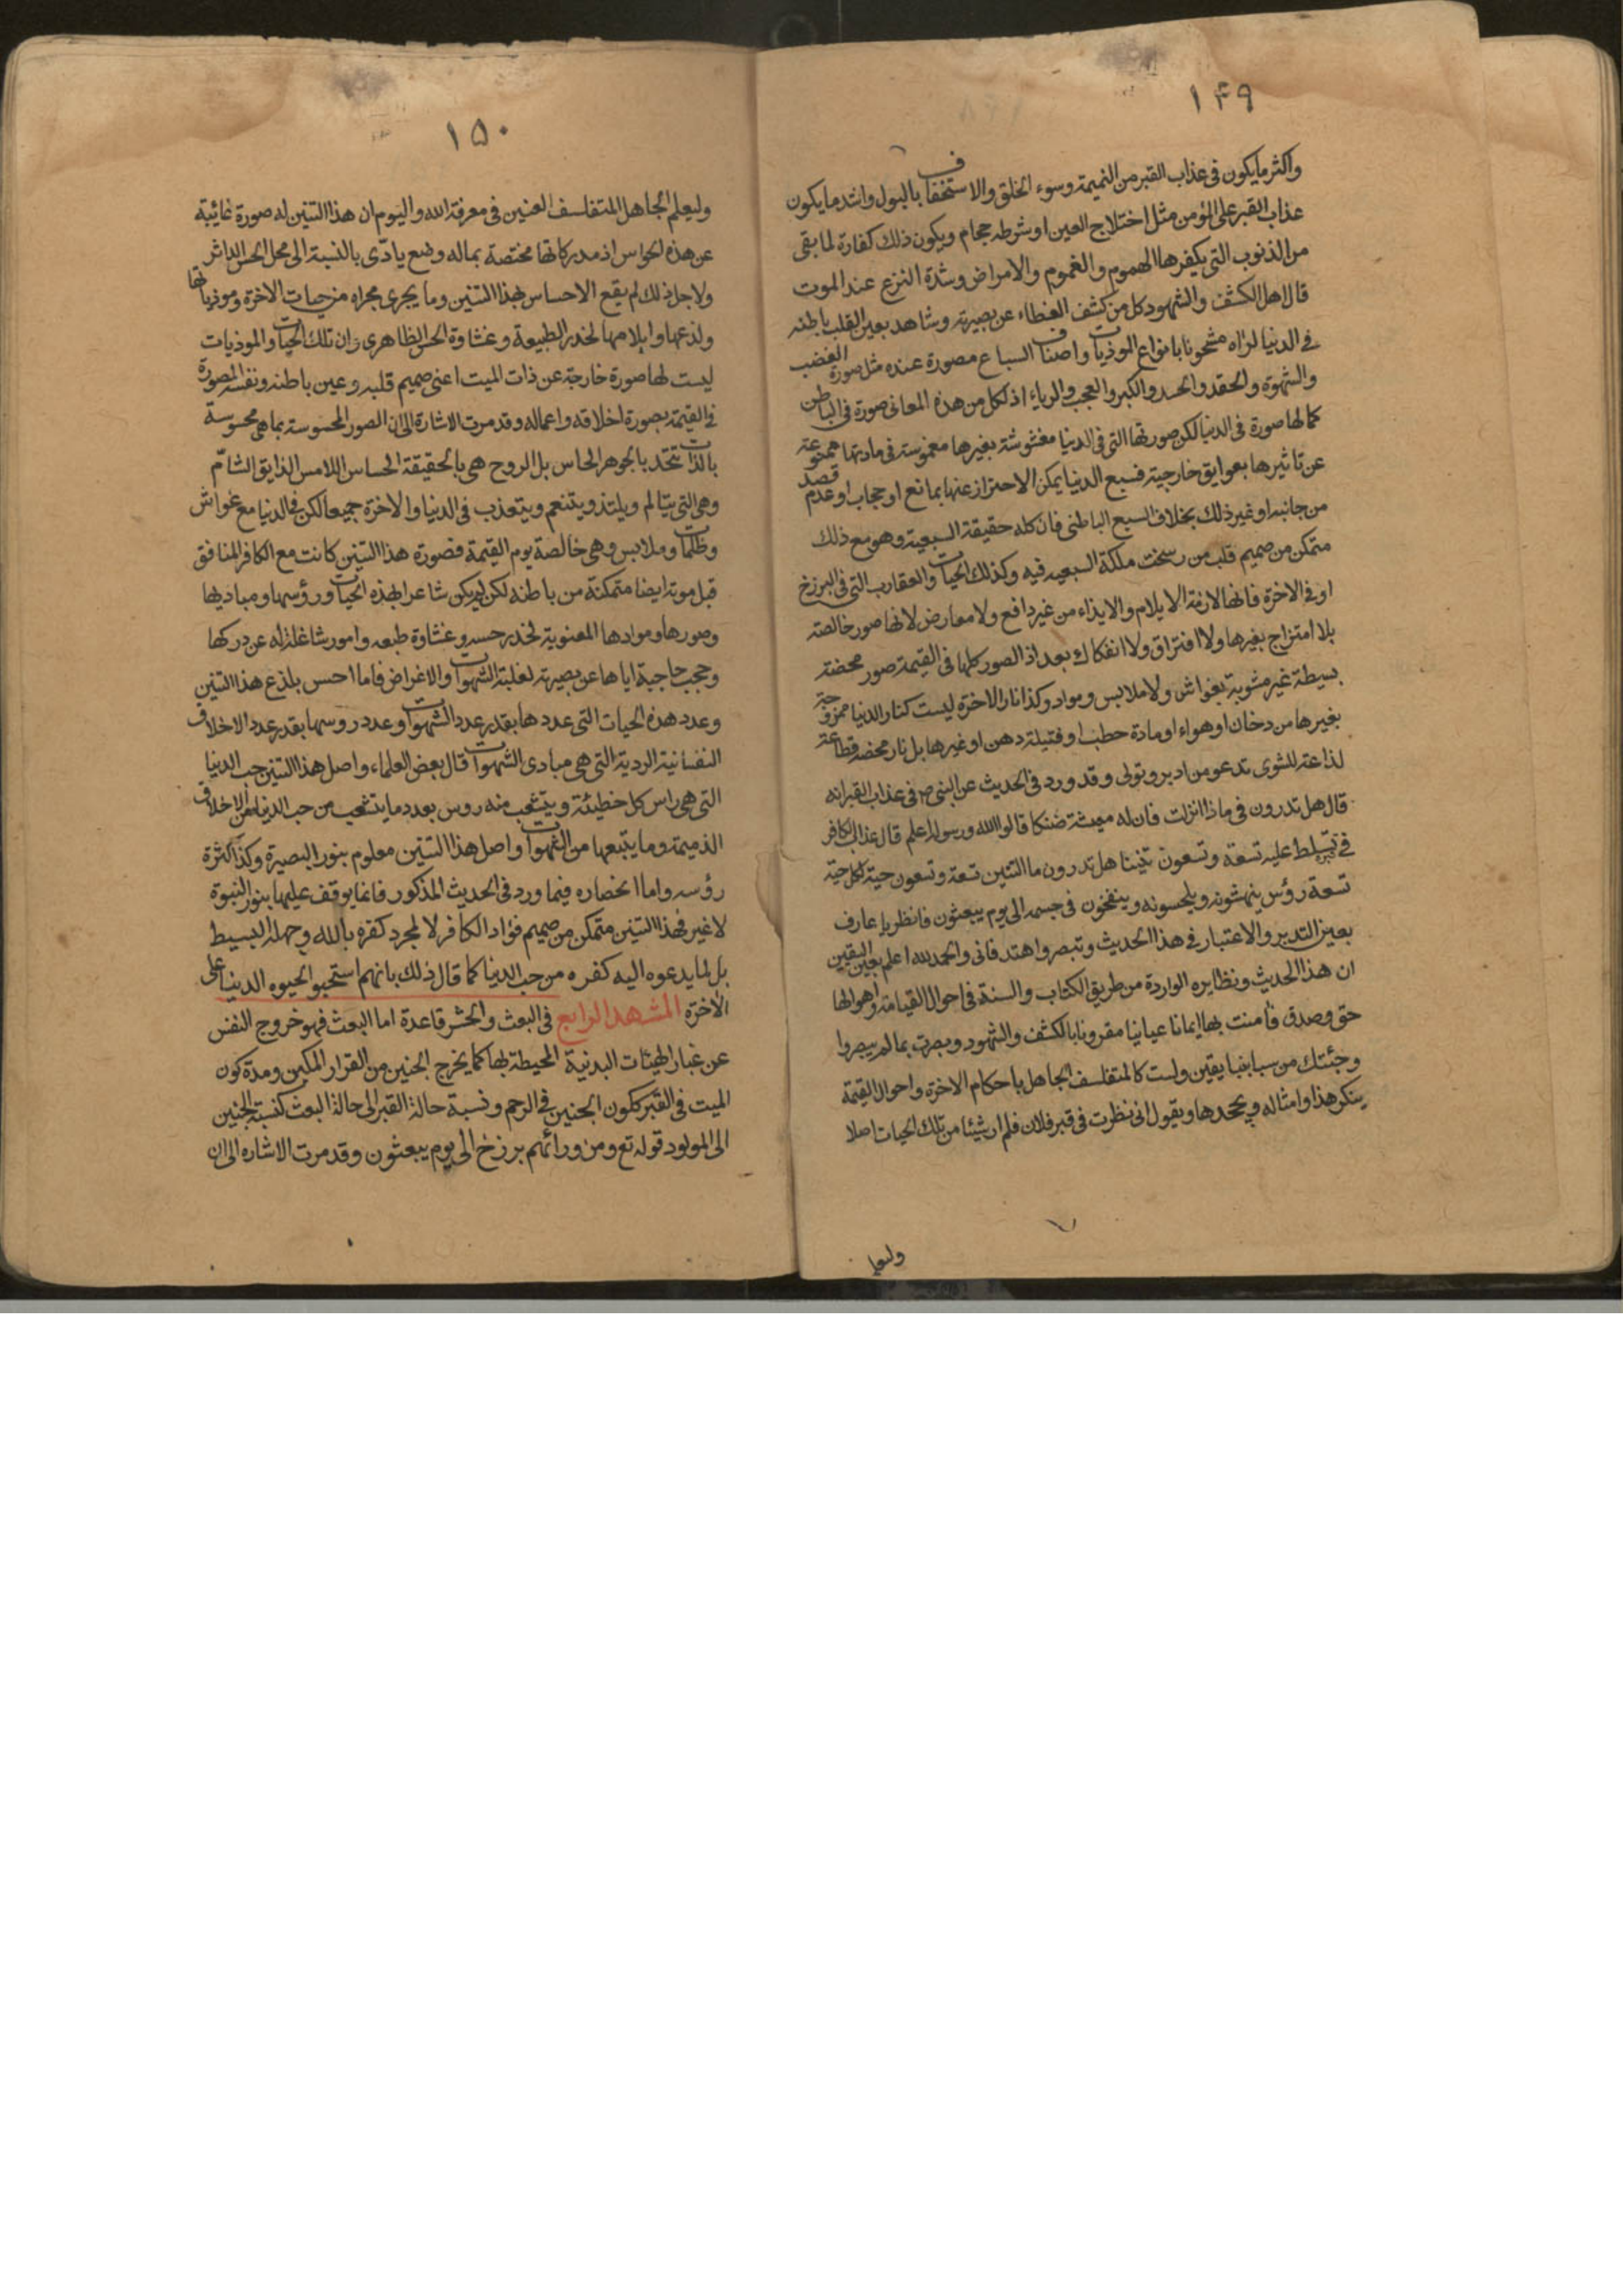 ١۴٩
واكثر ما يكون فى عذاب القبر من النميمة وسوء الخلق والاستخفاف بالبول واشد ما يكون
عذاب القبر على المؤمن مثل اختلاج العين او شرطه حجام ويكون ذلك كفارة لما بقى
من الذنوب التى يكفرها الهموم والغموم والامراض وشدة النزع عند الموت
قال اهل الكشف والشهود كل من كشف الغطاء عن بصيرته وشاهد بعين القلب باطنه
فى الدنيا لراه مشحونا بانواع الموذيات واصناف السباع مصورة عنده مثل صورة الغضب
والشهوة والحقد والحسد والكبر والعجب والرياء اذ لكل من هذه المعانى صورة فى الباطن
كما لها صورة فى الدنيا لكن صورتها التى فى الدنيا مغشوشة بغيرها مغموسة فى مادتها ممنوعة
عن تاثيرها بعوايق خارجية فسبع الدنيا يمكن الاحتراز عنها بمانع او حجاب او عدم قصد
من جانبه او غير ذلك بخلاف السبع الباطنى فان كله حقيقة السبعية وهو مع ذلك
متمكن من صميم قلب من رسخت ملكة السبعيه فيه وكذلك الحيات والعقارب التى فى البرزخ
او فى الاخرة فانها لازمة الايلام والايذاء من غير دافع ولا معارض لانها صور خالصة
بلا امتزاج بغيرها ولا افتراق ولا انفكاك بعد اذ الصور كلها فى القيمة صور محضة
بسيطة غير مشوبة بغواش ولا ملابس ومواد وكذا نار الاخرة ليست كنار الدنيا ممزوجة
بغيرها من دخان او هواء او مادة حطب او فتيلة دهن او غيرها بل نار محضه قطاعة
لذاعة للشوى تدعو من ادبر وتولى وقد ورد فى الحديث عن النبى ص فى عذاب القبر انه
قال هل تدرون فى ماذا انزلت فان له معيشة ضنكا قالوا الله ورسوله اعلم قال عذاب الكافر
فى قبره يسلط عليه تسعة وتسعون تنينا هل تدرون ما التنين تسعة وتسعون حية لكل حية
تسعة رؤس ينهشونه ويلحسونه وينفخون فى جسمه الى يوم يبعثون فانظر يا عارف
بعين التدبر والاعتبار فى هذا الحديث وتبصر واهتد فانى والحمد لله اعلم بعين اليقين
ان هذا الحديث ونظايره الواردة من طريق الكتاب والسنة فى احوال القيامة واهوالها
حق وصدق فأمنت بها ايمانا عيانيا مقرونا بالكشف والشهود وبصرت بما لم يبصروا
وجئتك من سبا بنبا يقين ولست كالمتفلسف الجاهل باحكام الاخرة واحوال القيمة
ينكر هذا وامثاله ويجحدها ويقول انى نظرت فى قبر فلان فلم ار شيئا من تلك الحيات اصلا
١۵٠
وليعلم الجاهل المتفلسف العنين فى معرفة الله واليوم ان هذا التنين له صورة غائبة
عن هذه الحواس اذ مدركاتها مختصة بماله وضع يادّى بالنسبة الى محل الحس الداثر
ولاجل ذلك لم يقع الاحساس بهذا التنين وما يجرى مجراه من حيات الاخرة وموذياتها
ولذعها وايلامها لخدر الطبيعة وغشاوة الحس الظاهرى وان تلك الحيات والموذيات
ليست لها صورة خارجة عن ذات الميت اعنى صميم قلبه وعين باطنه ونفسه المصورة
فى القيمة بصورة اخلاقه واعماله وقد مرت الاشارة الى ان الصور المحسوسة بما هى محسوسة
بالذات تتحد بالجوهر الحاس بل الروح هى بالحقيقة الحساس اللامس الذايق الشامّ
وهى التى يتالم ويلتذ ويتنعم ويتعذب فى الدنيا والاخرة جميعا لكن فى الدنيا مع غواش
وظلمات وملابس وهى خالصة يوم القيمة فصورة هذا التنين كانت مع الكافر المنافق
قبل موته ايضا متمكنة من باطنه لكن لم يكن شاعرا بهذه الحيات ورؤسها ومباديها
وصورها وموادها المعنوية لخدر حسه وغشاوة طبعه وامور شاغلة له عن دركها
وحجب حاجبة اياها عن بصيرته لغلبة الشهوات والاغراض فاما احس بلذع هذا التنين
وعدد هذه الحيات التى عددها بقدر عدد الشهوات وعدد روسها بقدر عدد الاخلاق
النفسانية الردية التى هى مبادى الشهوات قال بعض العلماء واصل هذا التنين حب الدنيا
التى هى راس كل خطيئة ويتشعب منه روس بعدد ما يتشعب من حب الدنيا من الاخلاق
الذميمة وما يتبعها من الشهوات واصل هذا التنين معلوم بنور البصيرة وكذا كثرة
رؤسه واما انحصاره فيما ورد فى الحديث المذكور فانما يوقف عليها بنور النبوة
لا غير فهذا التنين متمكن من صميم فؤاد الكافر لا لمجرد كفره بالله وجهله البسيط
بل لما يدعوه اليه كفره من حب الدنيا كما قال ذلك بانهم استحبو الحيوه الدنيا على
الاخرة المشهد الرابع فى البعث والحشر قاعدة اما البعث فهو خروج النفس
عن غبار الهيئات البدنية المحيطة بها كما يخرج الجنين من القرار المكين ومدة كون
الميت فى القبر ككون الجنين فى الرحم ونسبة حالة القبر الى حالة البعث كنسبة الجنين
الى المولود قوله تع ومن ورائهم برزخ الى يوم يبعثون وقد مرت الاشاره الى ان